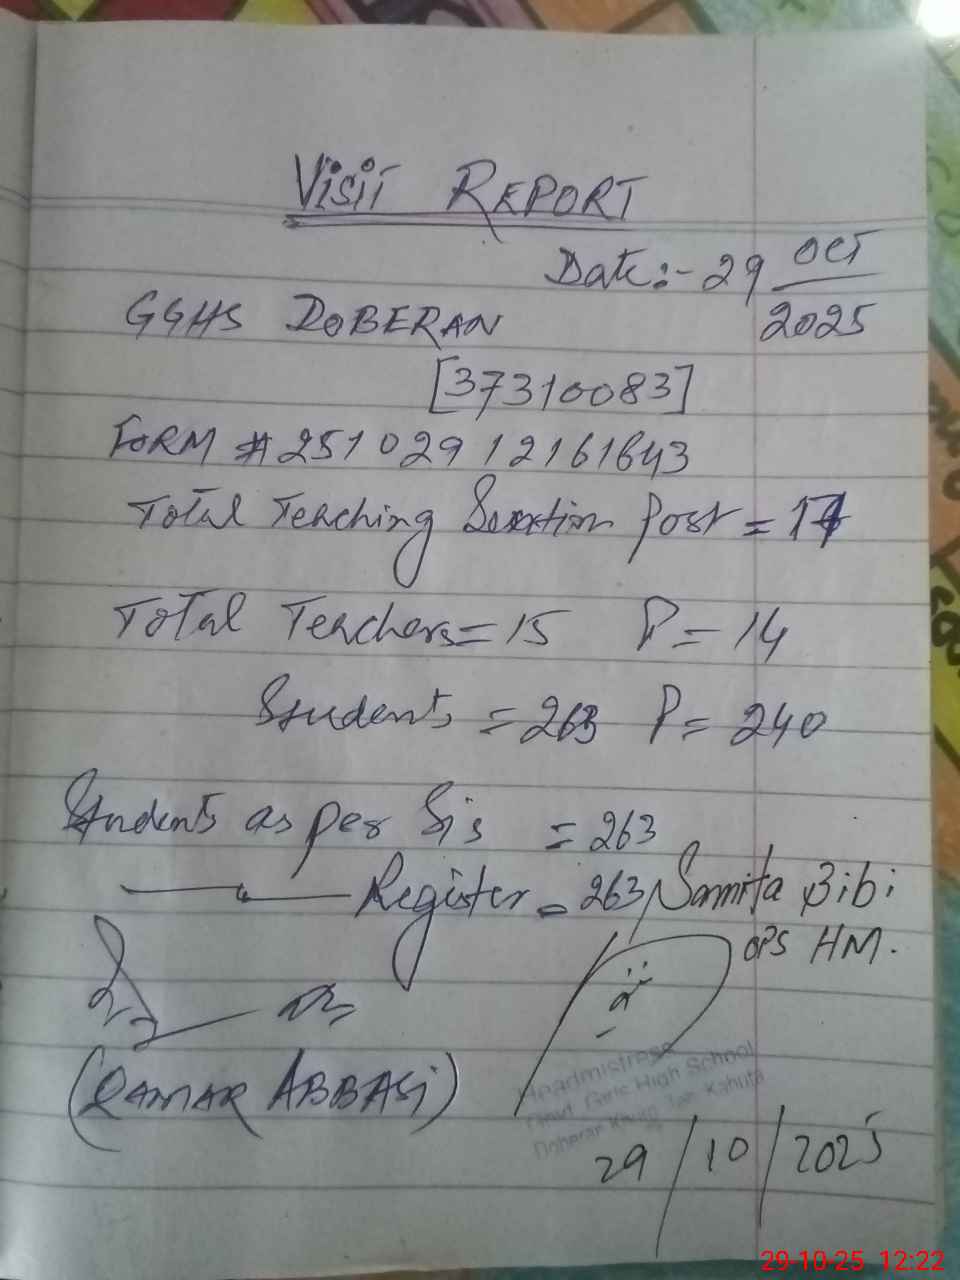 VISIT REPORT
Date:- 29 OCT
2025
GGHS DOBERAN
[37310083]
FORM # 25102912161643
Total Teaching Post = 17
Total Teachers = 15 P = 14
Students = 263 P = 240
Students as per Sis = 263
Register = 263
Samita Bibi
OPS HM.
(QAMAR ABBASI)
Headmistress
Govt. Girls High School
Doberan Khurd Teh. Kahuta
29/10/2025
29-10-25 12:22